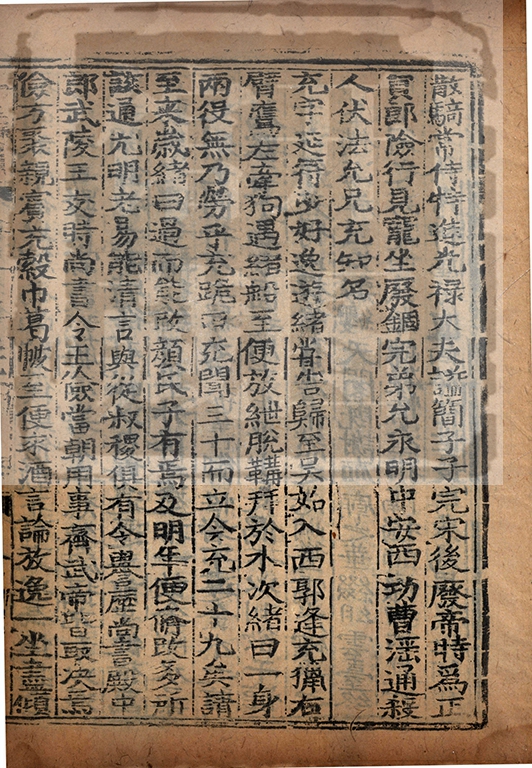 散騎常侍特進光禄大夫謚簡子子完宋後廢帝時爲正
員郎險行見寵坐廢錮完弟允永明中安西功曹淫通殺
人伏法允兄充知名
充字延符少好逸遊緒嘗告歸至吳始入西郭逢充獵右
臂鷹左牽狗遇緒船至便放紲脫鞲拜於水次緒曰一身
兩役無乃勞乎充跪曰充聞三十而立今充二十九矣請
至来歳緒曰過而能改顔氏子有焉及明年便脩改多所
該通尤明老易能清言與從叔稷俱有令譽歷尚書殿中
郎武陵王友時尚書令王儉當朝用事齊武帝皆取决焉
儉方聚親賓充縠巾葛帔至便求酒言論放逸一坐盡傾